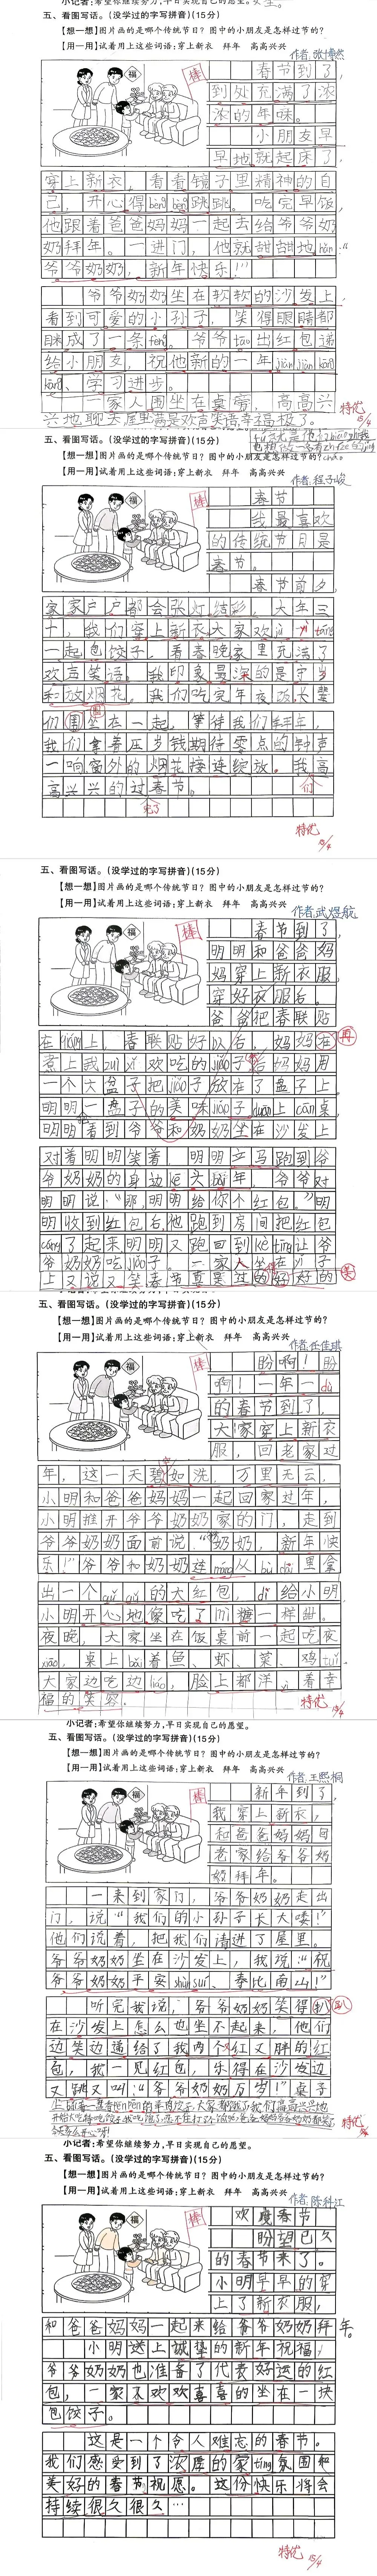 小记者:希望你继续努力,早日实现自己的愿望。
五、看图写话。(没学过的字写拼音)(15分)
【想一想】图片画的是哪个传统节日?图中的小朋友是怎样过节的?
【用一用】试着用上这些词语:穿上新衣 拜年 高高兴兴
福
棒
春节到了,
到处充满了浓
浓的年味。
小朋友早
早地就起床了,
穿上新衣,看看镜子里精神的自
己,开心得bèng bèng跳跳。吃完早饭,
他跟着爸爸妈妈一起去给爷爷奶
奶拜年。一进门,他就甜甜地hǎn:“
爷爷奶奶,新年快乐!”
爷爷奶奶坐在软软的沙发上,
看到可爱的小孙子,笑得眼睛都
眯成了一条fèng。爷爷tāo出红包递
给小朋友,祝他新的一年jiàn jiàn kāng
kāng、学习进步。
一家人围坐在桌旁,高高兴
兴地聊天屋里满是欢声笑语幸福极了。
特优 15/4
五、看图写话。(没学过的字写拼音)(15分)
【想一想】图片画的是哪个传统节日?图中的小朋友是怎样过节的?
【用一用】试着用上这些词语:穿上新衣 拜年 高高兴兴
福
棒
春节
我最喜欢
的传统节日是
春节。
春节前夕,
家家户户都会张灯结彩,大年三
十,我们穿上新衣大家欢jù yì táng
一起包饺子,看春晚家里充满了
欢声笑语。我印象最深的是守岁
和放烟花。我们吃完年夜饭长辈
们围坐在一起,等待我们拜年,
我们拿着压岁钱期待零点的钟声
一响窗外的烟花接连绽放。我高
高兴兴的过春节。
们
完了
特优 15/4
五、看图写话。(没学过的字写拼音)(15分)
【想一想】图片画的是哪个传统节日?图中的小朋友是怎样过节的?
【用一用】试着用上这些词语:穿上新衣 拜年 高高兴兴
作者:武煜航
福
棒
春节到了,
明明和爸爸妈
妈穿上新衣服,
穿好衣服后。
爸爸把春联贴
在qiáng上,春联贴好以后,妈妈在 再
煮上我zuì xǐ欢吃的jiǎo子后妈妈用
一个大盆子把jiǎo子放在了盘子上。
明明一盘子的美味jiǎo子duān上cān桌,
明明看到爷爷和奶奶坐在沙发上
对着明明笑着,明明立马跑到爷
爷奶奶的身边kē头bài年,爷爷对
明明说:“那,明明给你个红包。”明
明收到红包后,他跑到房间把红包
cáng了起来明明又跑回到kè tīng让爷
爷奶奶吃jiǎo子。一家人坐在yǐ子
上又说又笑春节真是过的好好的 美
五、看图写话。(没学过的字写拼音)(15分)
【想一想】图片画的是哪个传统节日?图中的小朋友是怎样过节的?
【用一用】试着用上这些词语:穿上新衣 拜年 高高兴兴
作者:任佳琪
福
棒
盼啊!盼
啊!一年一dù
的春节到了,
大家穿上新衣
服,回老家过
年,这一天碧如洗,万里无云,
小明和爸爸妈妈一起回家过年,
小明推开爷爷奶奶家的门,走到
爷爷奶奶面前说:“奶奶,新年快
乐!”爷爷和奶奶连máng从kǒu dài里拿
出一个gǔ gǔ的大红包,dì给小明,
小明开心地像吃了mì糖一样甜。
夜晚,大家坐在饭桌前一起吃夜
xiāo,桌上bǎi着鱼、虾、菜、鸡tuǐ,
大家边吃边liáo,脸上都洋yì着幸
福的笑容。
特优 15/4
小记者:希望你继续努力,早日实现自己的愿望。
五、看图写话。(没学过的字写拼音)(15分)
【想一想】图片画的是哪个传统节日?图中的小朋友是怎样过节的?
【用一用】试着用上这些词语:穿上新衣 拜年 高高兴兴
作者:王熙桐
福
棒
新年到了,
我穿上新衣,
和爸爸妈妈回
老家给爷爷奶
奶拜年。
一来到家门,爷爷奶奶走出
门,说:“我们的小孙子长大喽!”
他们说着,把我们请进了屋里。
爷爷奶奶坐在沙发上,我说:“祝
爷爷奶奶平安shùn suì、寿比南山!”
听完我说,爷爷奶奶笑得趴 趴
在沙发上怎么也坐不起来,他们
边笑边递给了我两个又红又胖的红
包,我一见红包,乐得在沙发边
又跳又叫:“爷爷奶奶万岁!”桌子
特优
小记者:希望你继续努力,早日实现自己的愿望。
五、看图写话。(没学过的字写拼音)(15分)
【想一想】图片画的是哪个传统节日?图中的小朋友是怎样过节的?
【用一用】试着用上这些词语:穿上新衣 拜年 高高兴兴
作者:陈科江
福
棒
欢度春节
盼望已久
的春节来了。
小明早早的穿
上了新衣服,
和爸爸妈妈一起来给爷爷奶奶拜年。
小明送上诚挚的新年祝福,
爷爷奶奶也准备了代表好运的红
包,一家人欢欢喜喜的坐在一块
包饺子。
这是一个令人难忘的春节。
我们感受到了浓厚的家tíng氛围和
美好的春节祝愿。这份快乐将会
持续很久很久…
特优 15/4